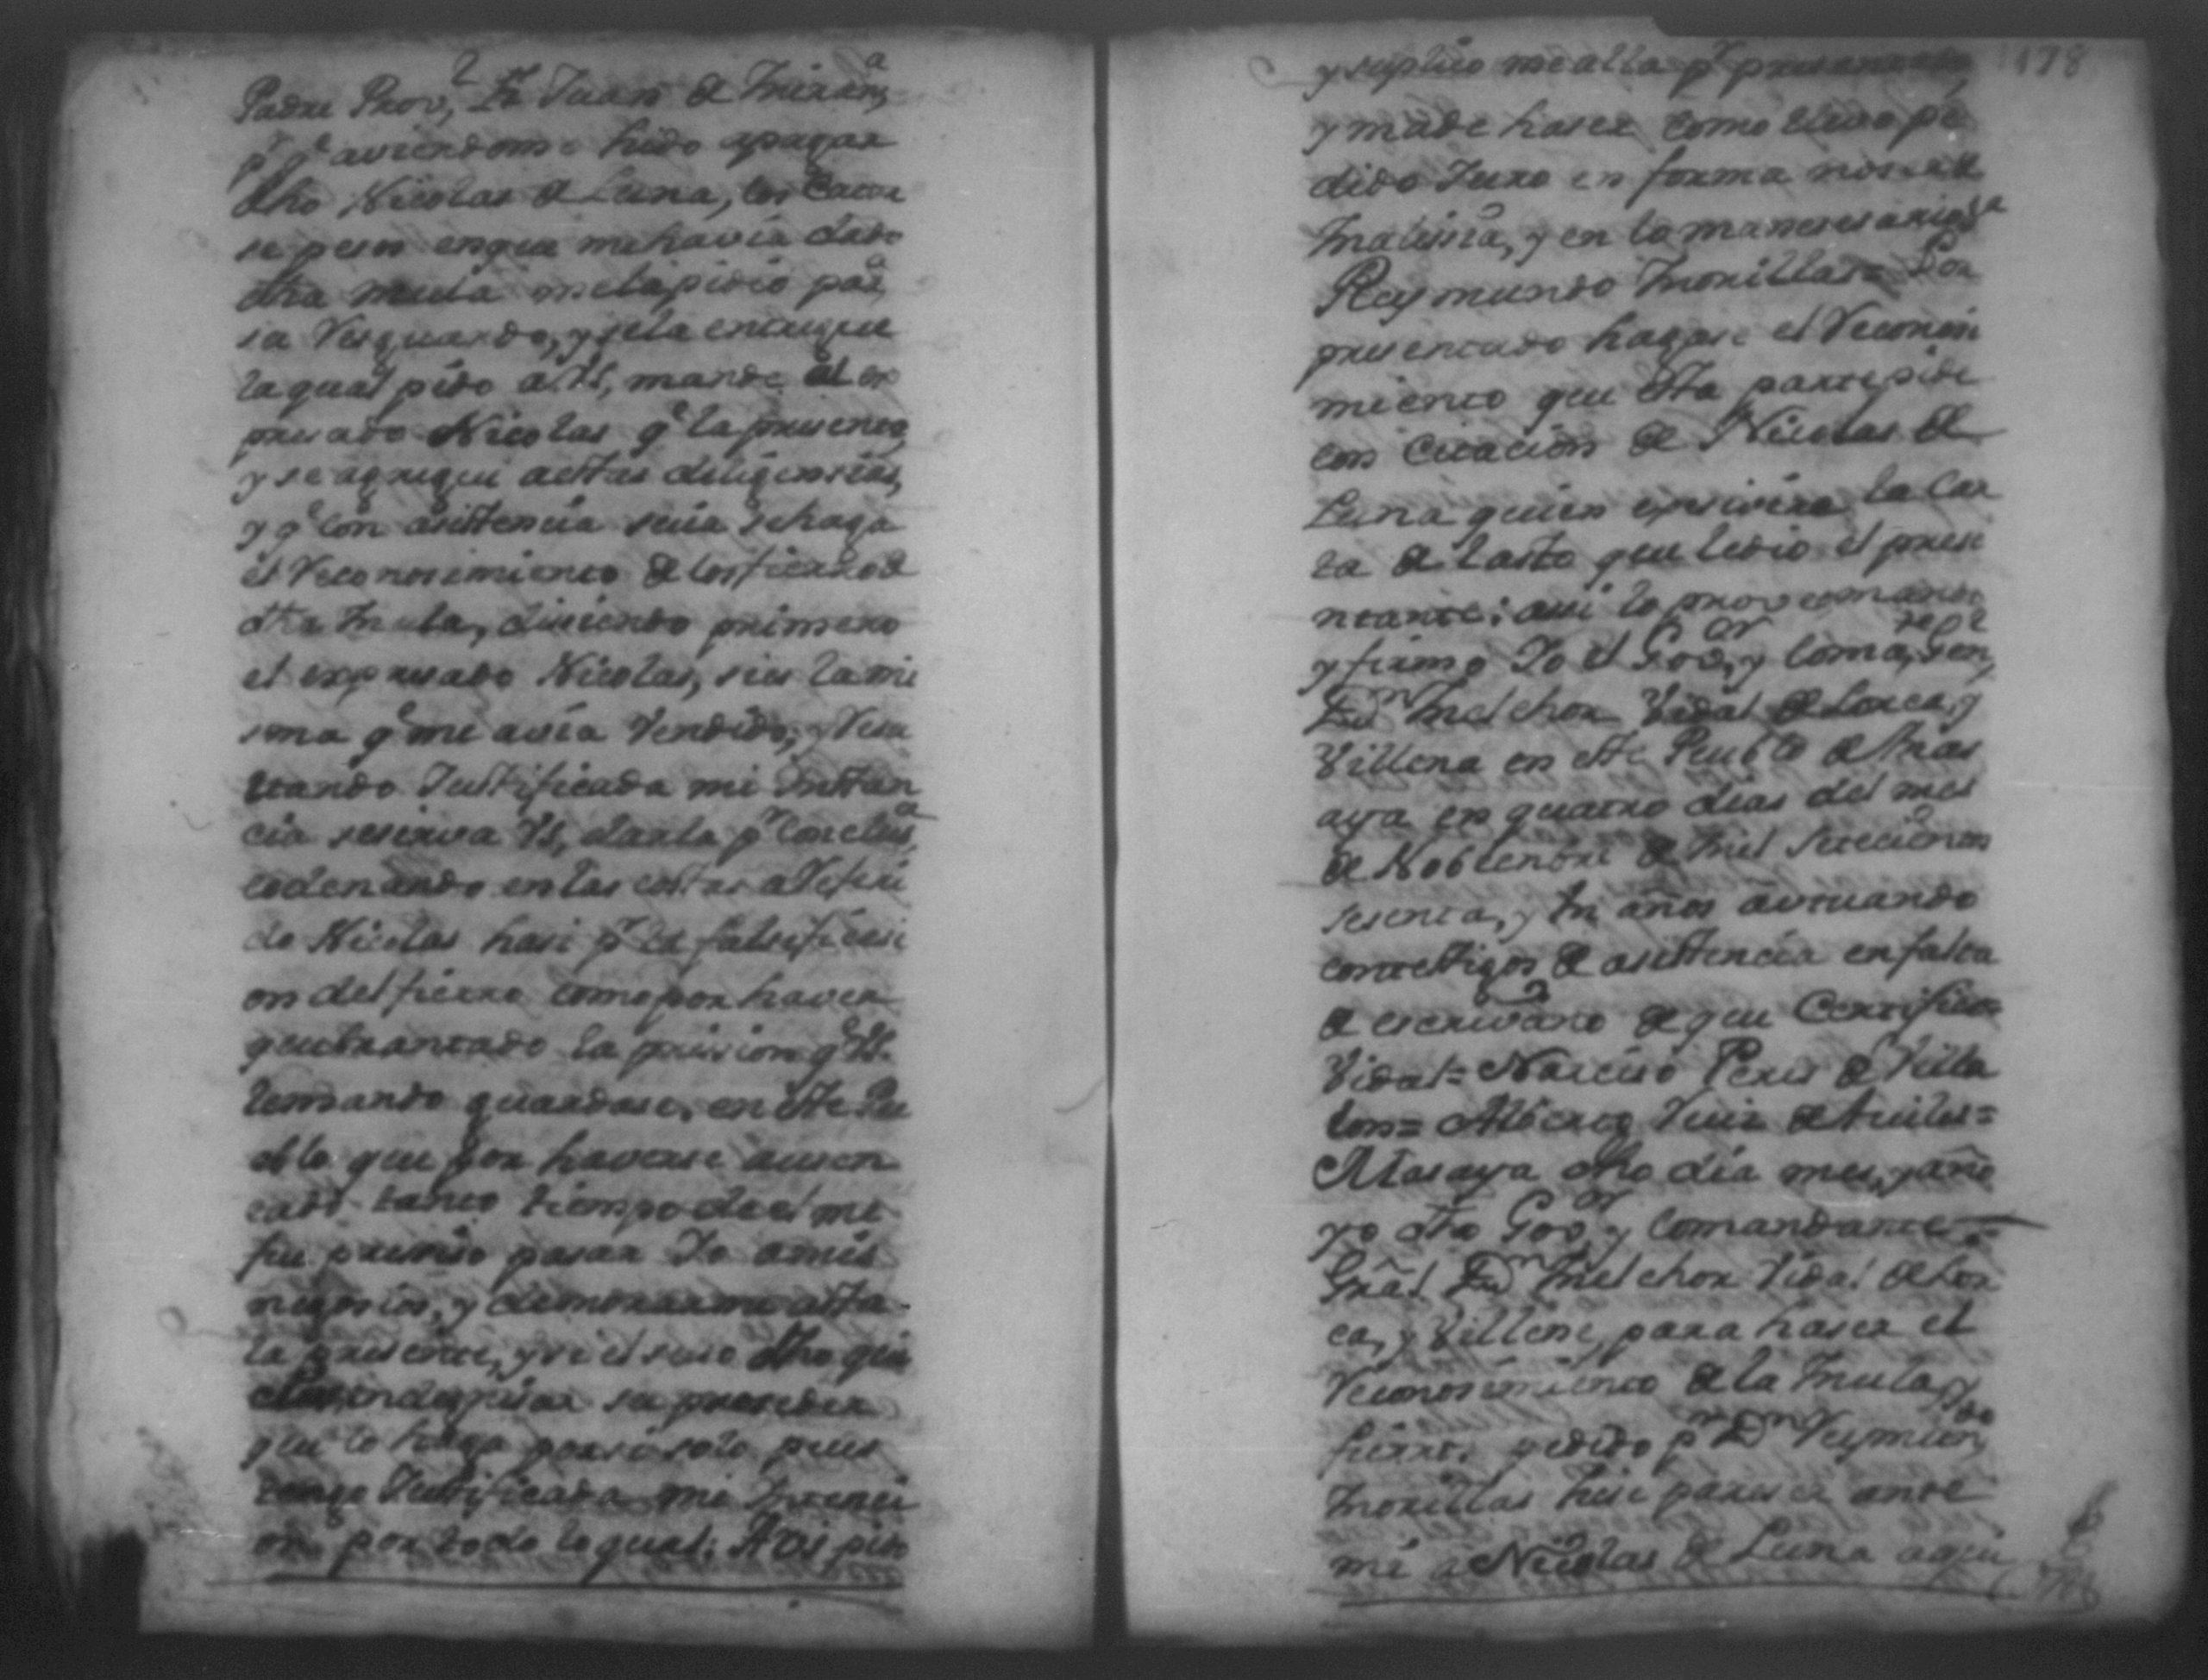 Padre Prov.l Fr Juan de
pr qe aviendome hido apagar
dho Nicolas de Luna, los Cator
se pesos enque mehavia dado
dha mula melapidio paa
sa Resguardo, y sela entregue
laqual pido a VS, mande al ex
presado Nicolas qe la presente,
y se agregue aestas diligensias,
y qe con asistencia suia sehaga
el Reconosimiento de losfierros de
dha Mula, disiendo primero
el expresado Nicolas, sies lami
sma qe me avia Vendido, y Resu
ltando Justificada mi Instan
cia sesirva VS, darla pr Conclusa
codenando enlas costas alReferi
do Nicolas hasi pr la falsificasi
on delfierro comopor haver
quebrantado la prision qe VS.
lemando guardase, en este Pu
eblo que por haverse ausen
tado tanto tiempo deel me
fue presiso pasar Yo amis
negosios, y demorarme asta
la presente, y si el suso dho qui
indemnisar su proseder
que lo haga porsisolo pues
tengo Justificada mi Intenci
on por todo loqual: A VS pido
178
y suplico mealla pr presentado,
y made haser como llevo pe
dido Juro en forma noser de
Malisia, y en lo nanesesario &a
Reymundo Morillas = Por
presentado hagase el Reconosi
miento que esta partepide
con Citacion de Nicolas de
Luna quien exsivira la Car
ta de lasto que ledio el prese
ntante: asi lo proveo mando
y firmo Yo el Govor y Coma,te Genl
Dn Melchor Vidal de Lorca, y
Villena en este Pueblo de Mas
aya en quatro dias del mes
de Nobiembre de Mil Setecientos
sesenta, y Un años autuando
contestigos de asistencia enfalta
de escrivano de que Certifico=
Vidal= Narciso Peres de Villa
lon= Alberto Ruis de Aviles=
Masaya dho dia mes, y año
yo dho Govor y Comandante
Gral Dn Melchor Vidal de Lor
ca, y Villena, para haser el
Reconosimiento de la Mula, y
fierro. pedido pr Dn Reymundo
Morillas hise pareser ante
mi a Nicolas de Luna aquie